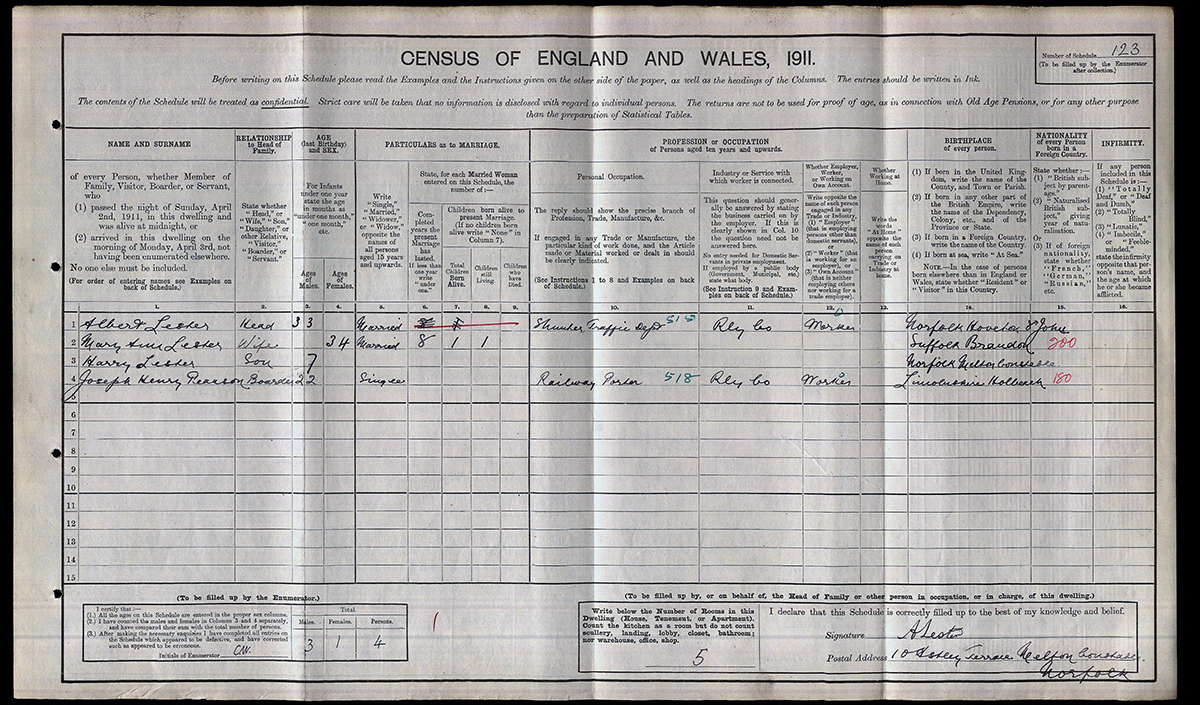 CENSUS OF ENGLAND AND WALES, 1911.
Number of Schedule 123
(To be filled up by the Enumerator after collection.)
Before writing on this Schedule please read the Examples and the Instructions given on the other side of the paper, as well as the headings of the Columns. The entries should be written in Ink.
The contents of the Schedule will be treated as confidential. Strict care will be taken that no information is disclosed with regard to individual persons. The returns are not to be used for proof of age, as in connection with Old Age Pensions, or for any other purpose
than the preparation of Statistical Tables.
NAME AND SURNAME
of every Person, whether Member of
Family, Visitor, Boarder, or Servant,
who
(1) passed the night of Sunday, April
2nd, 1911, in this dwelling and
was alive at midnight, or
(2) arrived in this dwelling on the
morning of Monday, April 3rd, not
having been enumerated elsewhere.
No one else must be included.
(For order of entering names see Examples on
back of Schedule.)
RELATIONSHIP
to Head of
Family.
State whether
"Head," or
"Wife," "Son,"
"Daughter," or
other Relative,
"Visitor,"
"Boarder," or
"Servant."
AGE
(last Birthday)
and SEX.
For Infants
under one year
state the age
in months as
"under one month,"
"one month,"
etc.
Ages of Males.
Ages of Females.
PARTICULARS as to MARRIAGE.
Write
"Single,"
"Married,"
"Widower,"
or "Widow,"
opposite the
names of
all persons
aged 15 years
and upwards.
State, for each Married Woman
entered on this Schedule, the
number of :—
Completed years the present Marriage has lasted.
If less than one year write "under one."
Children born alive to
present Marriage.
(If no children born
alive write "None" in
Column 7).
Total Children Born Alive.
Children still Living.
Children who have Died.
PROFESSION or OCCUPATION
of Persons aged ten years and upwards.
Personal Occupation.
The reply should show the precise branch of
Profession, Trade, Manufacture, &c.
If engaged in any Trade or Manufacture, the
particular kind of work done, and the Article
made or Material worked or dealt in should
be clearly indicated.
(See Instructions 1 to 8 and Examples on back
of Schedule.)
Industry or Service with
which worker is connected.
This question should generally be answered by stating
the business carried on by
the employer. If this is
clearly shown in Col. 10
the question need not be
answered here.
No entry needed for Domestic Servants in private employment.
If employed by a public body
(Government, Municipal, etc.)
state what body.
(See Instruction 9 and Examples on back of Schedule.)
Whether Employer,
Worker,
or Working on
Own Account.
Write opposite the
name of each person
engaged in any
Trade or Industry,
(1) "Employer"
(that is employing
persons other than
domestic servants),
or
(2) "Worker" (that
is working for an
employer), or
(3) "Own Account"
(that is neither
employing others
nor working for a
trade employer).
Whether
Working at
Home.
Write the
words
"At Home"
opposite the
name of each
person
carrying on
Trade or
Industry at
home.
BIRTHPLACE
of every person.
(1) If born in the United Kingdom, write the name of the
County, and Town or Parish.
(2) If born in any other part of
the British Empire, write
the name of the Dependency,
Colony, etc., and of the
Province or State.
(3) If born in a Foreign Country,
write the name of the Country.
(4) If born at sea, write "At Sea."
NOTE.—In the case of persons
born elsewhere than in England or
Wales, state whether "Resident" or
"Visitor" in this Country.
NATIONALITY
of every Person
born in a
Foreign Country.
State whether :—
(1) "British subject by parentage."
(2) "Naturalised British subject," giving year of naturalisation.
(3) If of foreign
nationality,
state whether
"French,"
"German,"
"Russian,"
etc.
INFIRMITY.
If any person
included in this
Schedule is :—
(1) "Totally
Deaf," or "Deaf
and Dumb,"
(2) "Totally
Blind,"
(3) "Lunatic,"
(4) "Imbecile,"
or "Feeble-minded,"
state the infirmity
opposite that person's name, and
the age at which
he or she became
afflicted.
1. 2. 3. 4. 5. 6. 7. 8. 9. 10. 11. 12. 13. 14. 15. 16.
1 Albert Lester Head 33 Married Shunter Traffic Dept 515 Rly Co Worker Norfolk Hoveton St John
2 Mary Ann Lester Wife 34 Married 8 1 1 Suffolk Brandon 200
3 Harry Lester Son 7 Norfolk Melton Constable
4 Joseph Henry Pearson Boarder 22 Single Railway Porter 518 Rly Co Worker Lincolnshire Holbeach 180
5
6
7
8
9
10
11
12
13
14
15
(To be filled up by the Enumerator.)
I certify that :—
(1.) All the ages on this Schedule are entered in the proper sex columns.
(2.) I have counted the males and females in Columns 3 and 4 separately,
and have compared their sum with the total number of persons.
(3.) After making the necessary enquiries I have completed all entries on
the Schedule which appeared to be defective, and have corrected
such as appeared to be erroneous.
Initials of Enumerator
Total.
Males. Females. Persons.
3 1 4
(To be filled up by, or on behalf of, the Head of Family or other person in occupation, or in charge, of this dwelling.)
Write below the Number of Rooms in this
Dwelling (House, Tenement, or Apartment).
Count the kitchen as a room but do not count
scullery, landing, lobby, closet, bathroom;
nor warehouse, office, shop.
5
I declare that this Schedule is correctly filled up to the best of my knowledge and belief.
Signature A Lester
Postal Address 10 Astley Terrace Melton Constable
Norfolk